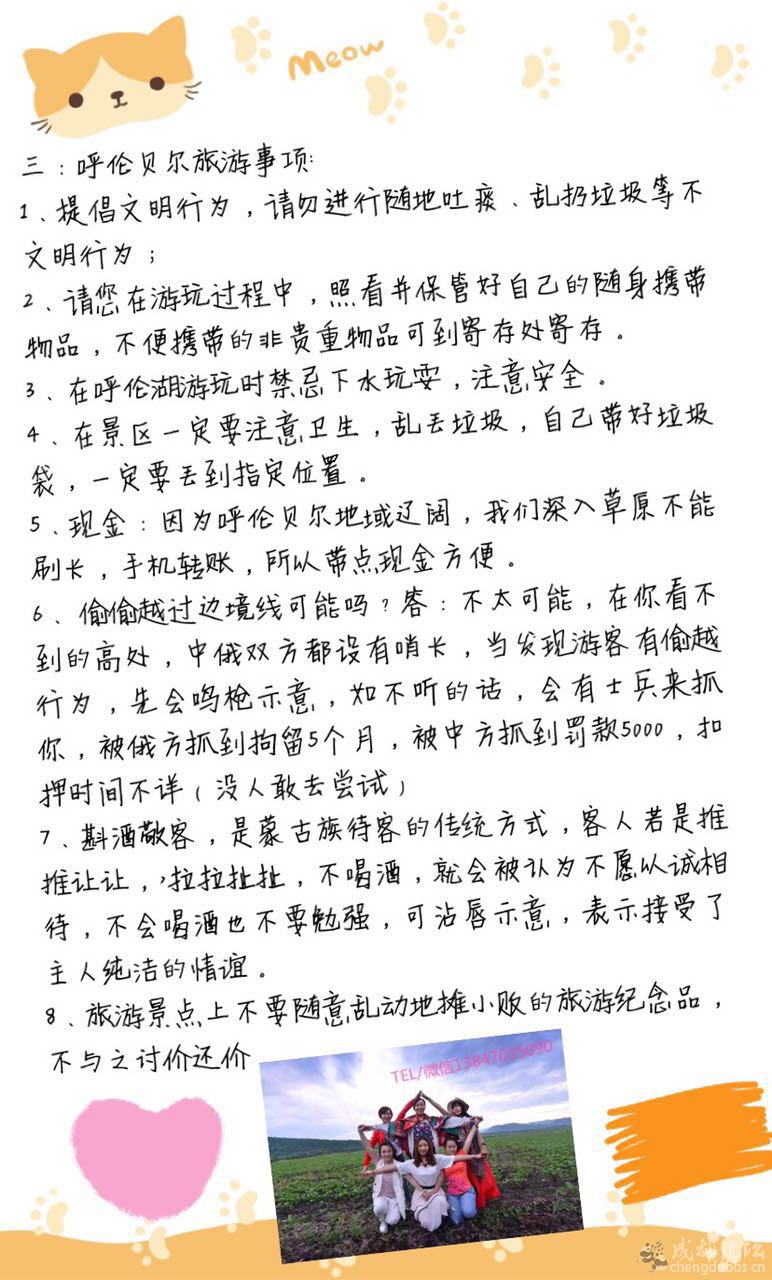 Meow
三：呼伦贝尔旅游事项：
1、提倡文明行为，请勿进行随地吐痰、乱扔垃圾等不
文明行为；
2、请您在游玩过程中，照看并保管好自己的随身携带
物品，不便携带的非贵重物品可到寄存处寄存。
3、在呼伦湖游玩时禁忌下水玩耍，注意安全。
4、在景区一定要注意卫生，乱丢垃圾，自己带好垃圾
袋，一定要丢到指定位置。
5、现金：因为呼伦贝尔地域辽阔，我们深入草原不能
刷长，手机转账，所以带点现金方便。
6、偷偷越过边境线可能吗？答：不太可能，在你看不
到的高处，中俄双方都设有哨长，当发现游客有偷越
行为，先会鸣枪示意，如不听的话，会有士兵来抓
你，被俄方抓到拘留5个月，被中方抓到罚款5000，扣
押时间不详（没人敢去尝试）
7、斟酒敬客，是蒙古族待客的传统方式，客人若是推
推让让，拉拉扯扯，不喝酒，就会被认为不愿以诚相
待，不会喝酒也不要勉强，可沾唇示意，表示接受了
主人纯洁的情谊。
8、旅游景点上不要随意乱动地摊小贩的旅游纪念品，
不与之讨价还价
TEL/微信
成都论坛
chengdubbs.cn